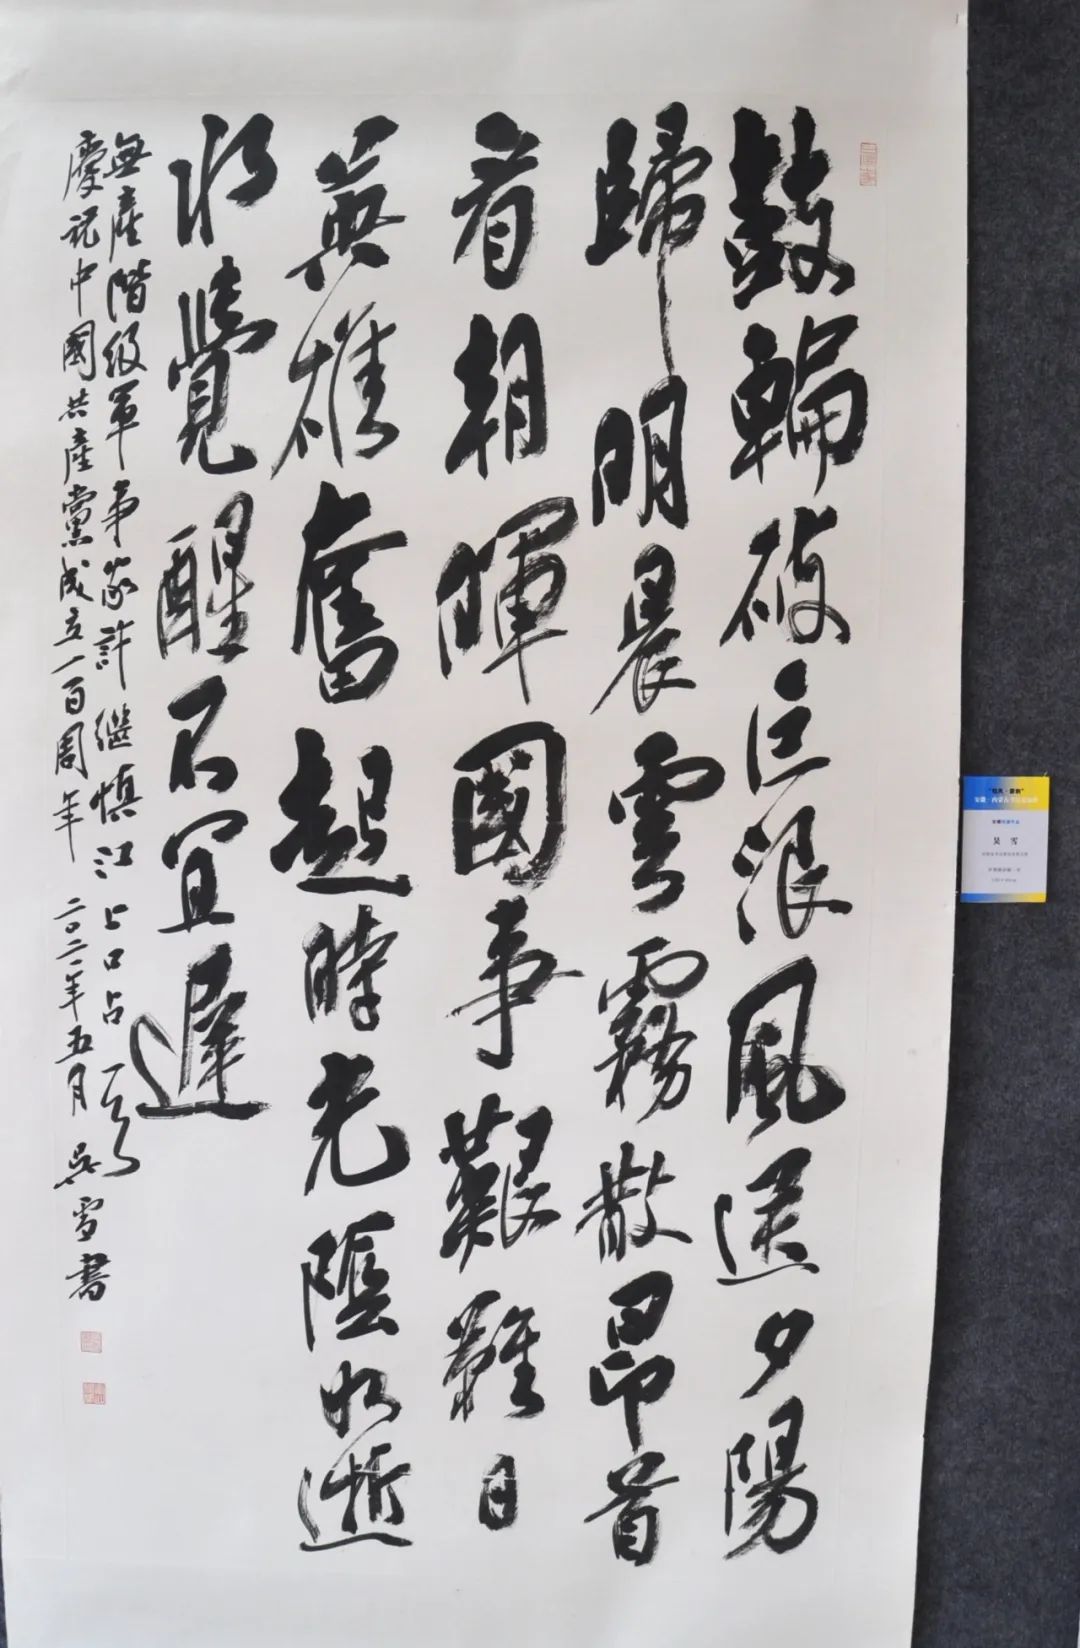 鼓輪破巨浪風送夕陽
歸明晨雲霧散昂首
看朝暉國事艱難日
英雄奮起時光陰如逝
水覺醒不宜遲
無產階級軍事家許繼慎江上口占一首
慶祝中國共產黨成立一百周年 二〇二一年五月 吳雪書
吴 雪